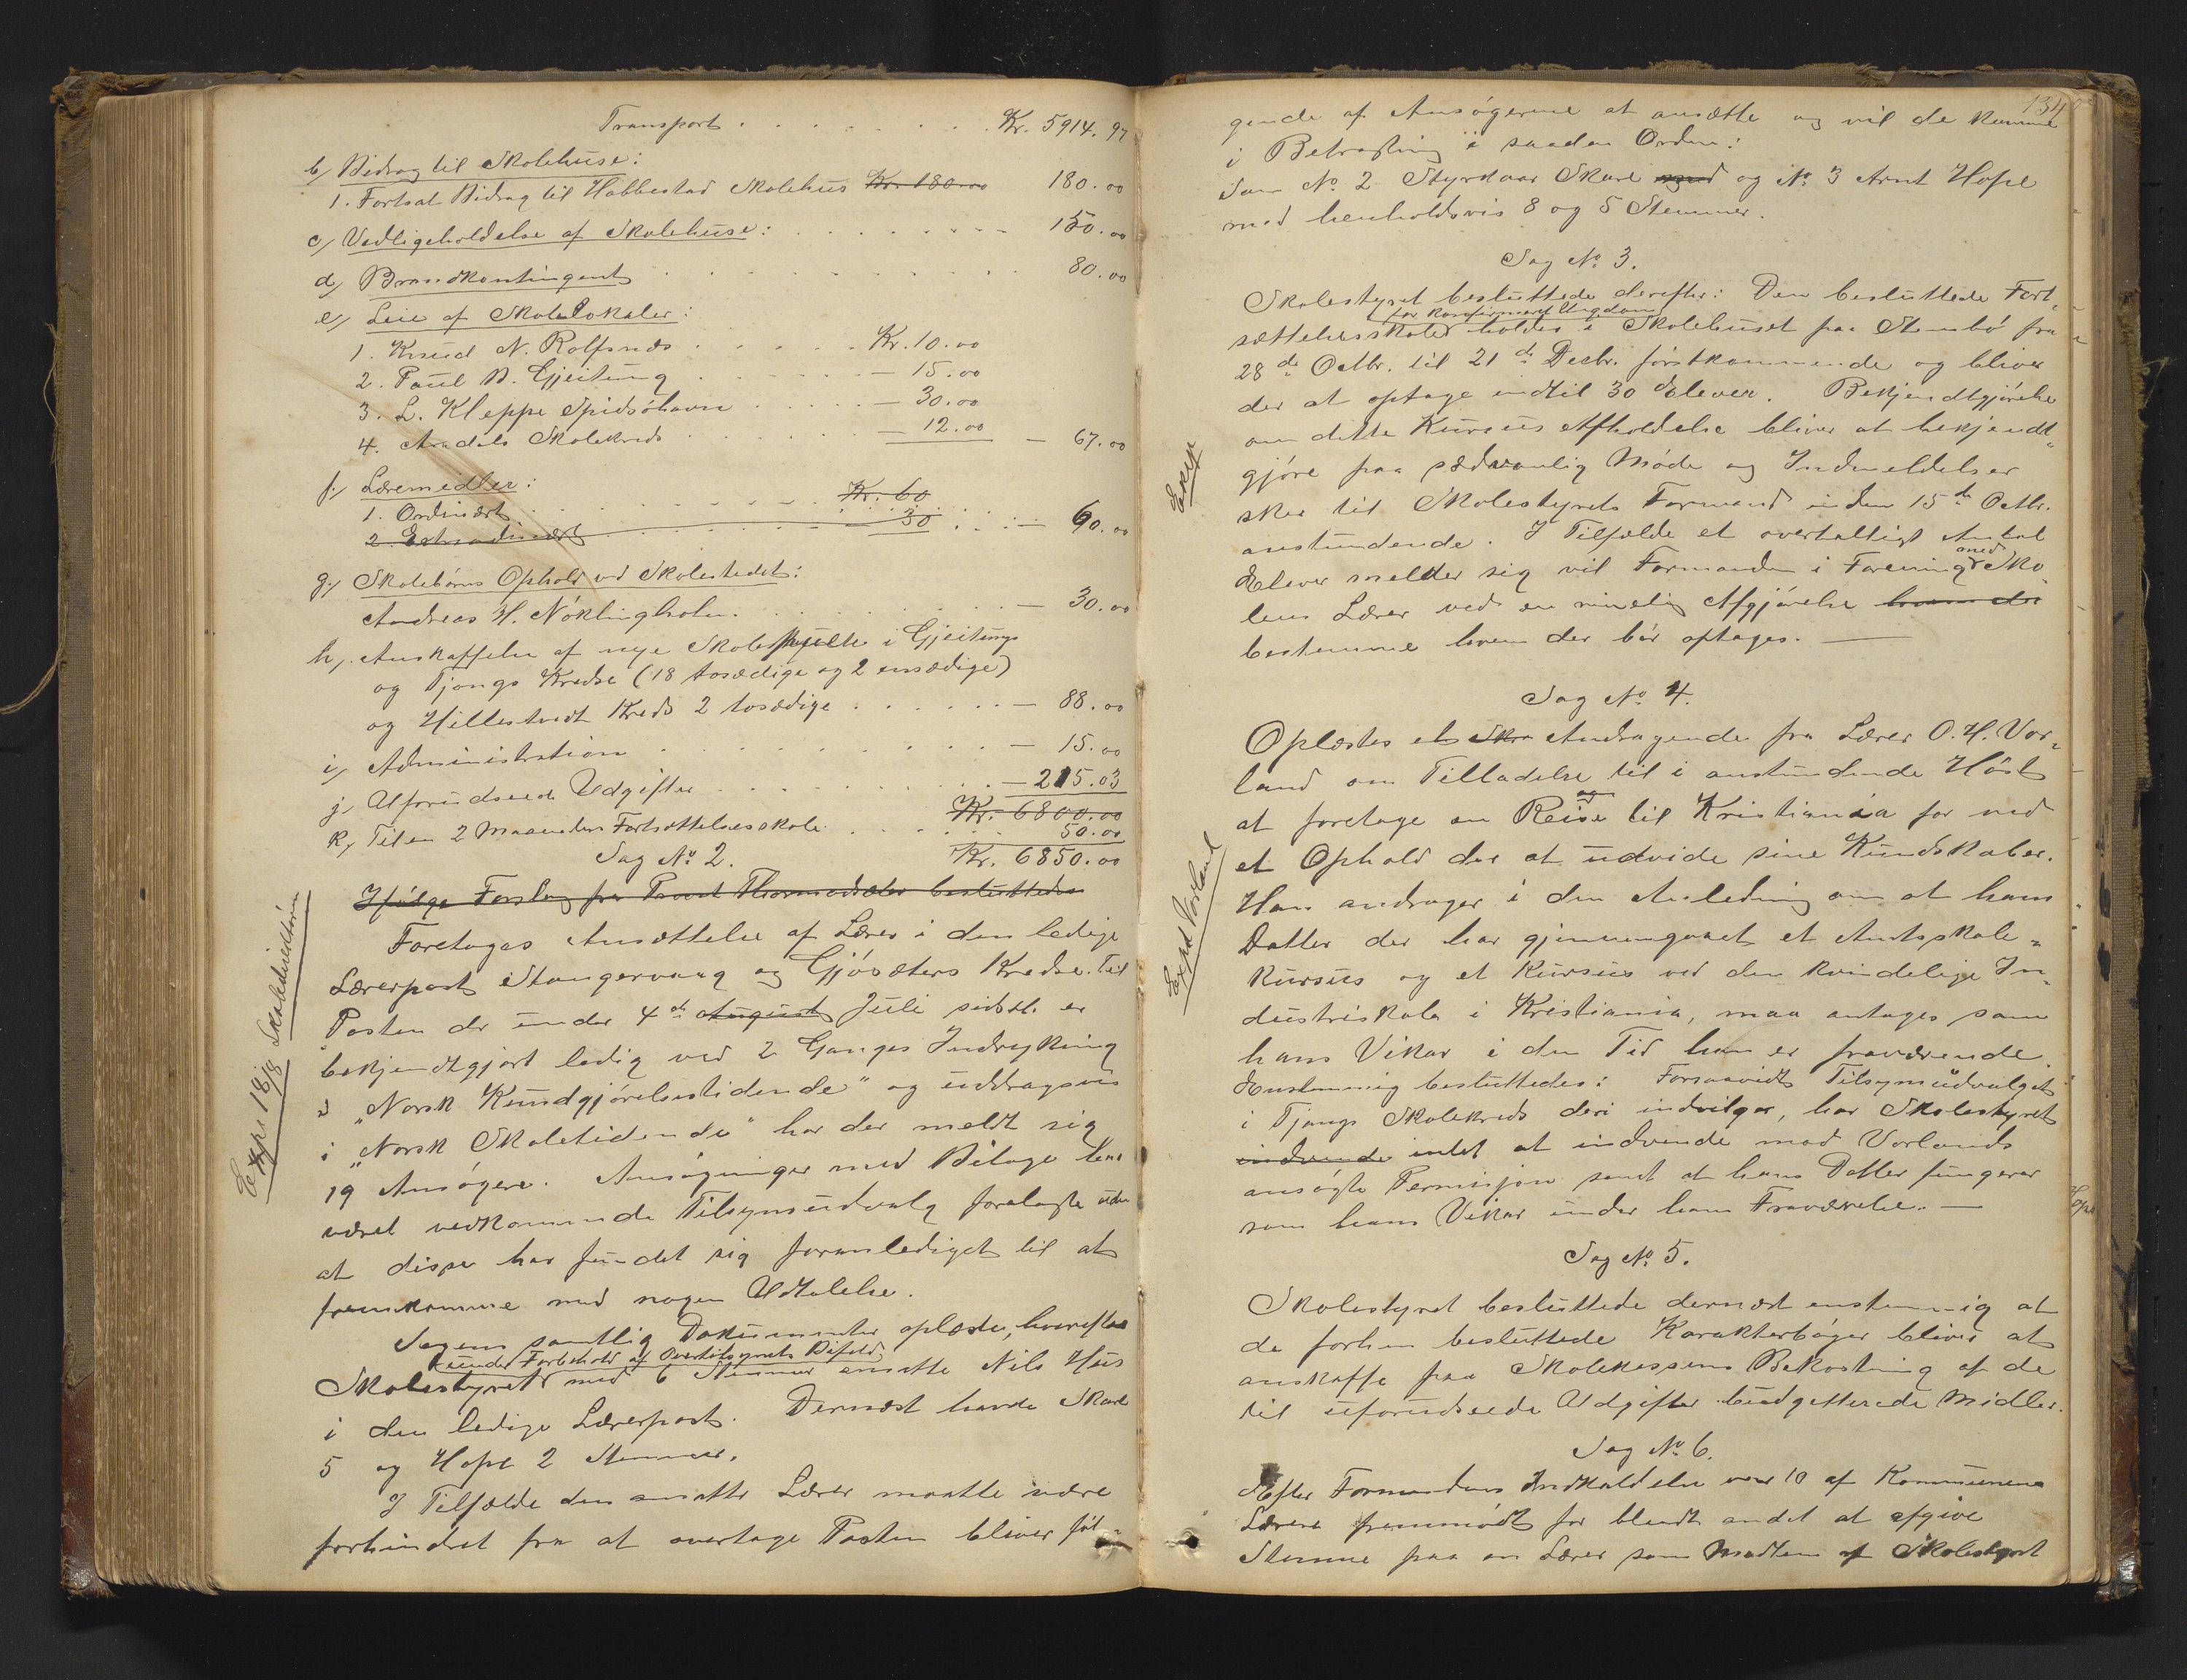 Transport . . . . . . . . Kr. 5914.97
b, Bidrag til Skolehuse:
1. Fortsat Bidrag til Habbestad Skolehus Kr. 180.00 180.00
c, Vedligeholdelse af Skolehuse: . . . . . . . . 150.00
d, Brandkontingent . . . . . . . . 80.00
e, Leie af Skolelokaler:
1. Knud N. Rolfsnæs . . . . . Kr. 10.00
2. Paul B. Gjeitung . . . . . — 15.00
3. L. Kleppe Spidsöhavn . . . . — 30.00
4. Aradals Skolekreds . . . . . — 12.00 — 67.00
f, Læremedler:
1. Ordinært . . . . . . . . Kr. 60
2. Extraordinært . . . . . . — 30 . . . — 60.00
g, Skolebörns Ophold ved Skolestedet:
Andreas H. Nöklingholm . . . . . . . . — 30.00
h, Anskaffelse af nye Skolepulte i Gjeitungs
og Tjongs Kredse (18 tosædige og 2 ensædige)
og Hillestvedt Kreds 2 tosædige . . . . . . — 88.00
i, Administration . . . . . . . . . — 15.00
j, Uforudseede Udgifter . . . . . . . . — 215.03
Kr. 6800.00
k, Til en 2 Maaneders Fortsættelsesskole . . . . . 50.00
Sag No 2. Kr. 6850.00
Ifölge Forslag fra Provst Thormodsæter besluttedes
Foretoges Ansættelse af Lærer i den ledige
Lærerpost Stangervaag og Gjösæters Kredse. Til
Posten der under 4de August Juli sidstl. er
bekjendtgjort ledig ved 2 Ganges Indrykning
i "Norsk Kundgjörelsestidende" og uddragsvis
i "Norsk Skoletidende" har der meldt sig
19 Ansögere. Ansögninger med Bilage har
været vedkommende Tilsynsudvalg forelagte uden
at disse har fundet sig foranlediget til at
fremkomme med nogen Udtalelse.
Expt 18/8 Skoledirektören
Sagens samtlige Dokumenter oplæste, hvorefter
under Forbehold af Overtilsynets Bifald
Skolestyret med 6 Stemmer ansatte Nils Hus
i den ledige Lærerpost. Dernæst havde Skare
5 og Hope 2 Stemmer.
I Tilfælde den ansatte Lærer maatte være
forhindret fra at overtage Posten bliver föl-
134
gende af Ansögerne at ansætte og vil de komme
i Betragtning i saadan Orden:
Som No 2 Styrkaar Skare med og No 3 Arnt Hope
med henholdsvis 8 og 5 Stemmer.
Sag No 3.
Skolestyret besluttede derefter: Den besluttede Fort-
for konfirmert Ungdom
sættelsesskole holdes i Skolehuset paa Stensbö fra
28de Octbr. til 21de Decbr. förstkommende og bliver
der at optage indtil 30 Elever. Bekjendtgjörelse
om dette Kursus Afholdelse bliver at bekjendt-
gjöre paa sædvanlig Maade og Indmeldelser
sker til Skolestyrets Formand inden 15de Octbr.
anstundende. I Tilfælde et overtalligt Antal
med
Elever melder sig vil Formanden i Forening Sko-
lens Lærer ved en mindelig Afgjörelse hvem der
bestemme hvem der bör optages. —
Expt
Sag No 4.
Oplæstes et Skr Andragende fra Lærer O. H. Vor-
land om Tilladelse til i anstundende Höst
at foretage en Reise til Kristiania for ved
et Ophold der at udvide sine Kundskaber.
Han andrager i den Anledning om at hans
Datter der har gjennemgaaet et Amtsskole-
kursus og et Kursus ved den kvindelige In-
dustriskole i Kristiania, maa antages som
hans Vikar i den Tid han er fraværende.
Enstemmig besluttedes: Forsaavidt Tilsynsudvalget
i Tjongs Skolekreds deri indvilger, har Skolestyret
indvende intet at indvende mod Vorlands
ansögte Permisjon samt at hans Datter fungerer
som hans Vikar under hans Fraværelse. —
Expd Vorland
Sag No 5.
Skolestyret besluttede dernæst enstemmig at
de forhen besluttede Karakterböger bliver at
anskaffe paa Skolekassens Bekostning af de
til uforudseede Udgifter budgetterede Midler.
Sag No 6.
Efter Formandens Indkaldelse var 10 af Kommunens
Lærere fremmödt for blandt andet at afgive
Stemme paa en Lærer som Medlem af Skolestyret